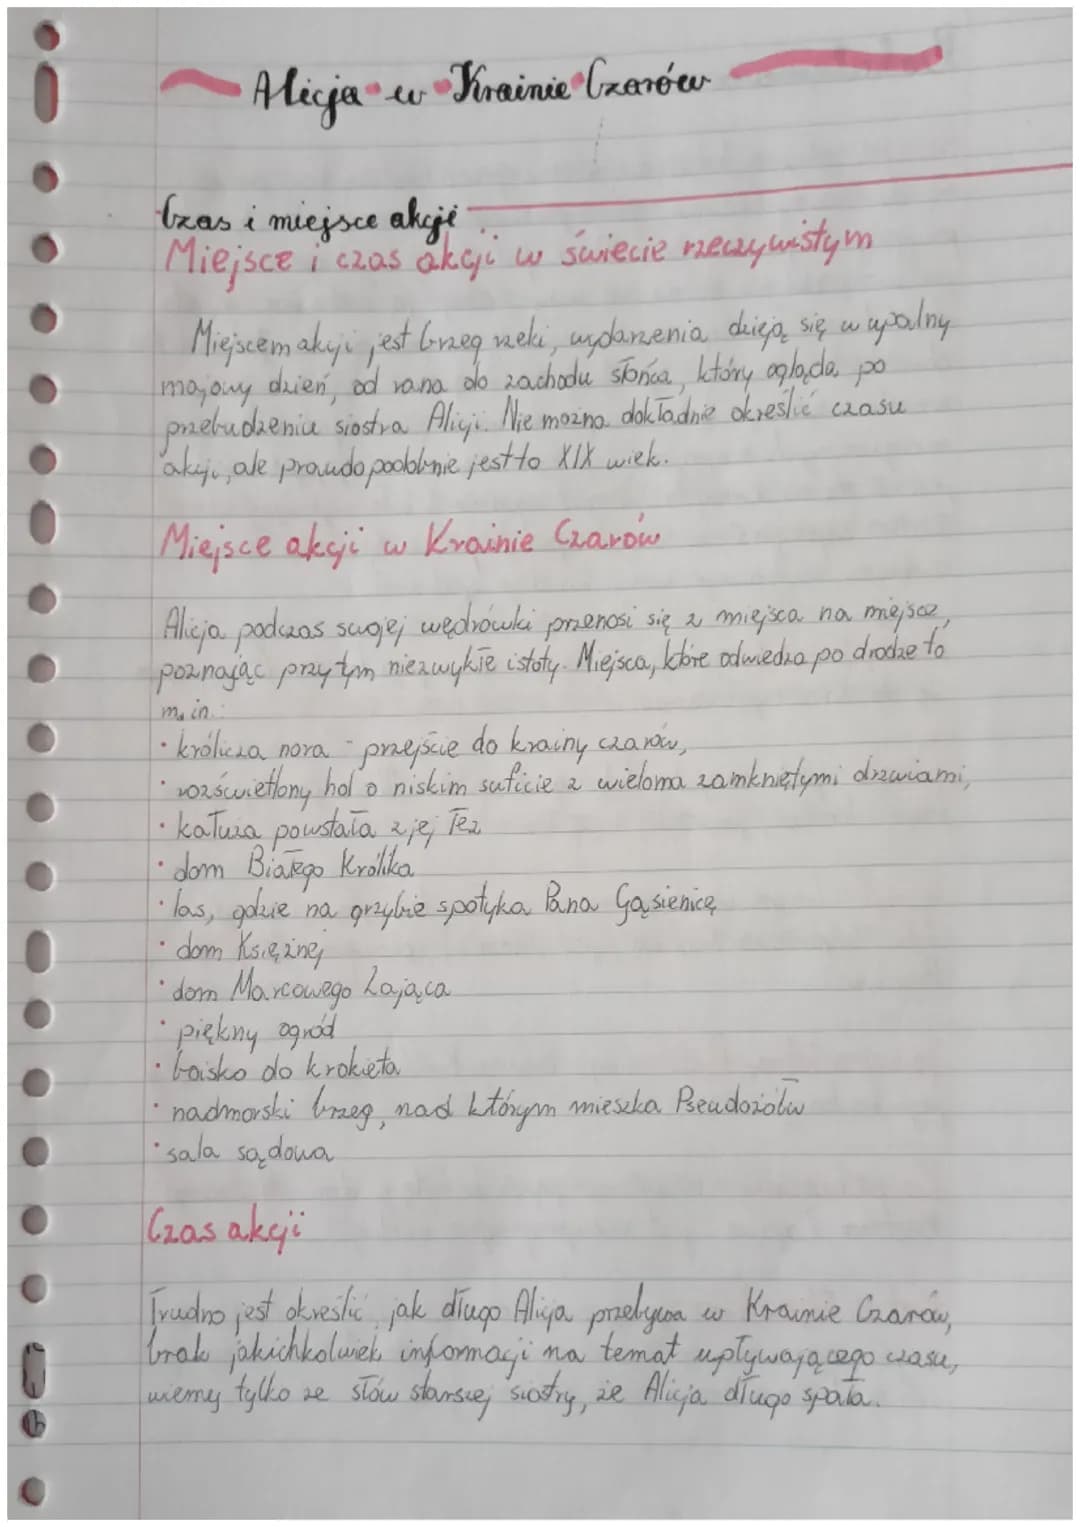 Alicja w Krainie Czarów
Czas i miejsce akcji
Miejsce i czas akcji w świecie rzeczywistym
Miejscem akcji jest brzeg rzeki, wydarzenia dzieją się w upalny
majowy dzień, od rana do zachodu słońca, który ogląda po
przebudzeniu siostra Alicji. Nie można dokładnie określić czasu
akcji, ale prawdopodobnie jest to XIX wiek.
Miejsce akcji w Krainie Czarów
Alicja podczas swojej wędrówki przenosi się z miejsca na miejsce,
poznając przy tym niezwykłe istoty. Miejsca, które odwiedza po drodze to
m.in.:
• królicza nora - przejście do krainy czarów,
• rozświetlony hol o niskim suficie z wieloma zamkniętymi drzwiami,
• kałuża powstała z jej łez
• dom Białego Królika
• las, gdzie na grzybie spotyka Pana Gąsienicę
• dom Księżnej
• dom Marcowego Zająca
• piękny ogród
• boisko do krokieta
• nadmorski brzeg, nad którym mieszka Pseudożółw
• sala sądowa
Czas akcji
Trudno jest określić, jak długo Alicja przebywa w Krainie Czarów,
brak jakichkolwiek informacji na temat upływającego czasu,
wiemy tylko ze słów starszej siostry, że Alicja długo spała.